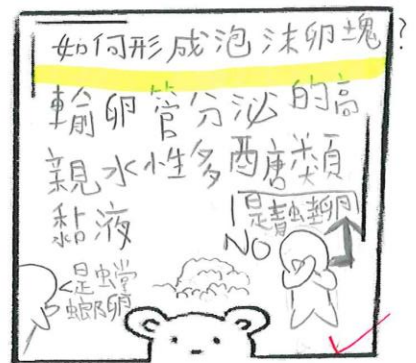 如何形成泡沫卵塊?
輸卵管分泌的高
親水性多醣類
黏液
是青蛙卵
NO
是螳
螂卵